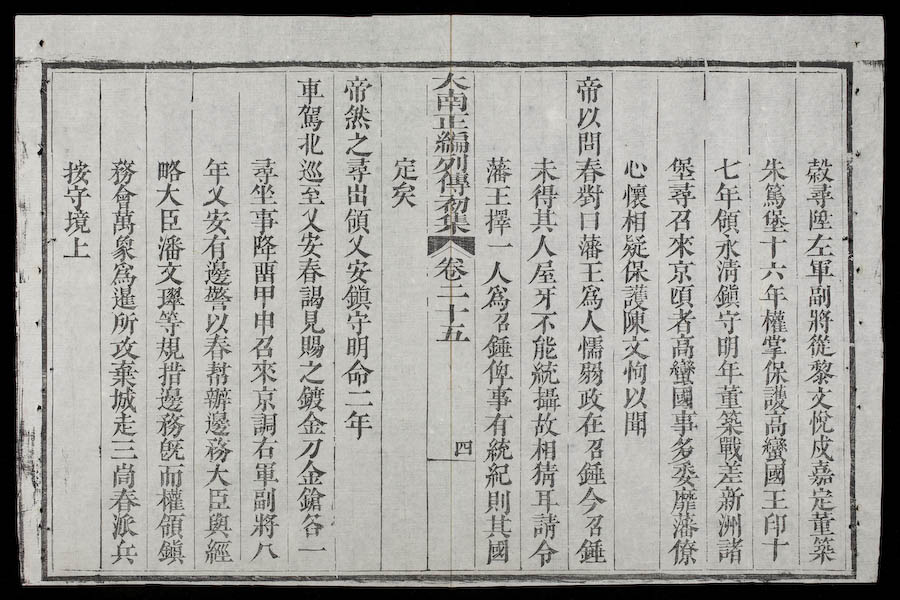 殺尋陞左軍副將從黎文悅戍嘉定董築
朱篤堡十六年權掌保護高蠻國王印十
七年領永清鎮守明年董築戰差新洲諸
堡尋召來京頃者高蠻國事多委靡藩僚
心懷相疑保護陳文恂以聞
帝以問春對曰藩王爲人懦弱政在召錘今召錘
未得其人屋牙不能統攝故相猜耳請令
藩王擇一人爲召錘俾事有統紀則其國
大南正編列傳初集 卷二十五 四
定矣
帝然之尋出領乂安鎮守明命二年
車駕北巡至乂安春謁見賜之鍍金刀金鎗各一
尋坐事降畱甲申召來京調右軍副將八
年乂安有邊警以春幇辦邊務大臣與經
略大臣潘文璻等規措邊務旣而權領鎮
務會萬象爲暹所攻棄城走三尚春派兵
按守境上